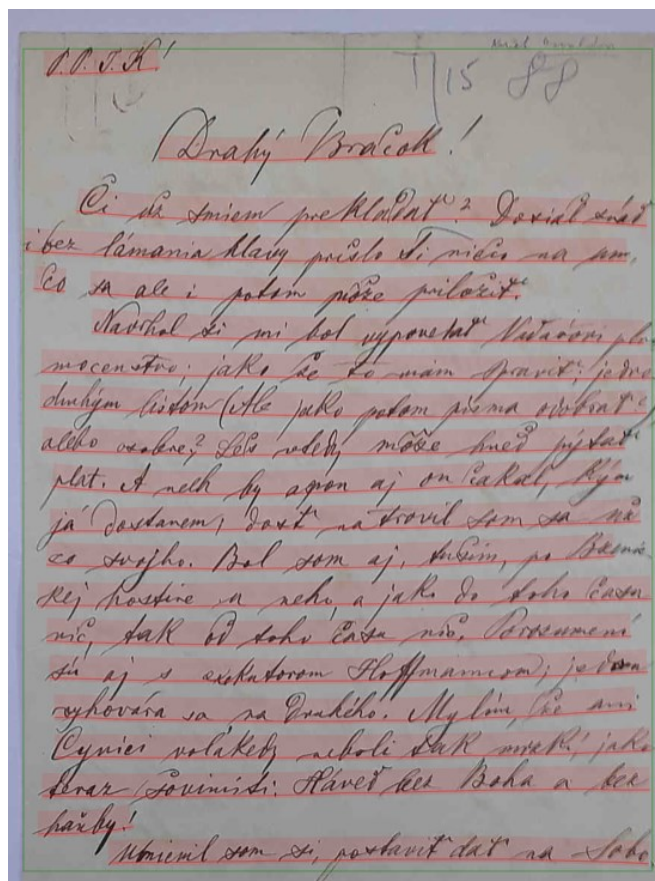 P. P. T. K!
T/15 88
Drahý Bračok!
Či už smiem prekladať? Dosiaľ snáď
i bez lámania hlavy prišlo Ti niečo na um,
čo sa ale i potom môže priložiť.
Navrhol si mi bol vypovedať plno
mocenstvo; jako že to mám spraviť; jedno
duchým listom (Ale jako potom písma odobrať?
alebo osobne? Leš vtedy môže hneď pýtať
plat. A nech by aspon aj on čakal, kým
já dostanem; dosť natrovil som sa už
zo svojho. Bol som aj, tuším, po
kej hostine u neho, a jako do toho času
nič, tak od toho času nič. Porozumení
sú aj s exekutorom Hoffmannom; jeden
vyhovára sa na druhého. Myslím, že ani
Cynici volakedy neboli tak mrzkí, jako
teraz šovinisti. Háveď bez Boha a bez
hanby!
Umienil som si, postaviť dať na